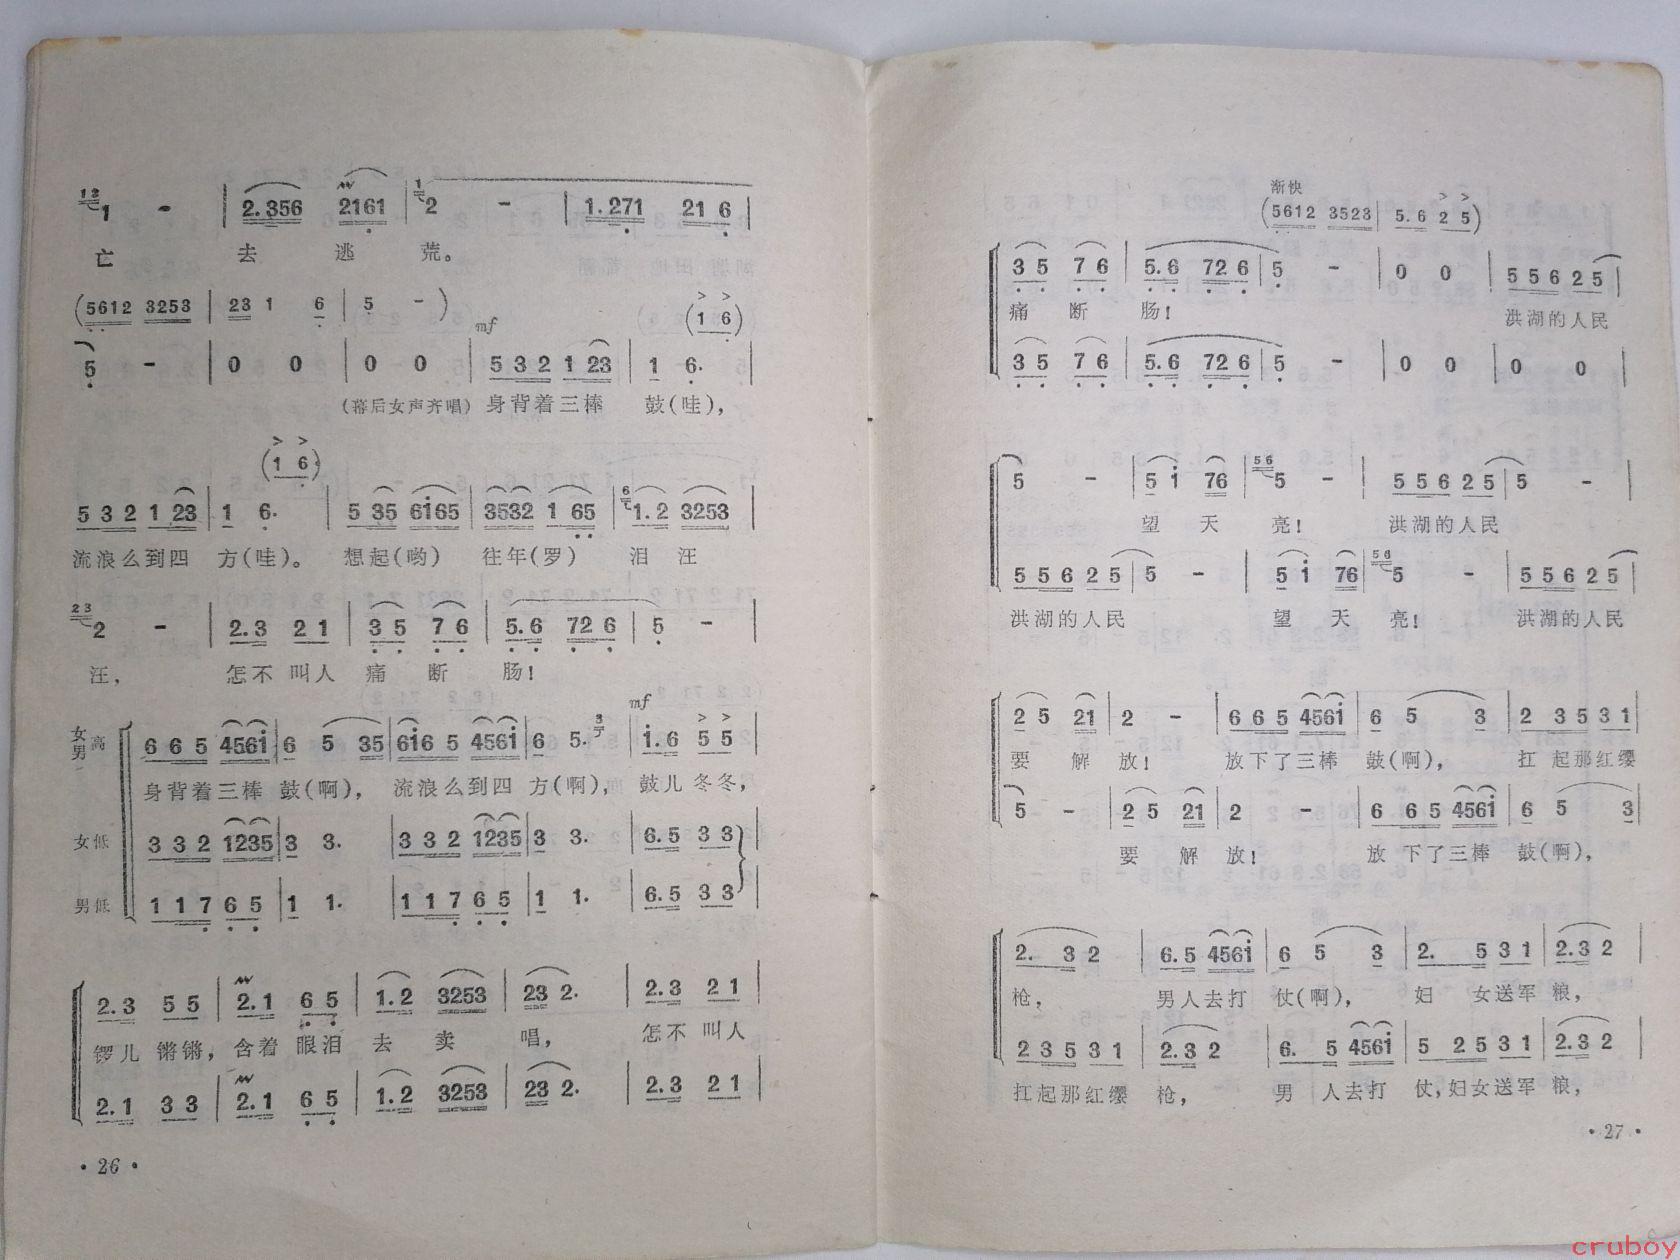 12
1 - | 2.356 2161 | 1 2 - | 1.271 21 6 |
亡 去 逃 荒。
(5612 3253 | 23 1 6 | 5 - )
mf (1 6)
5 - | 0 0 | 0 0 | 5 3 2 1 23 | 1 6. |
(幕后女声齐唱) 身背着三棒 鼓(哇),
(1 6)
5 3 2 1 23 | 1 6. | 5 35 6i65 | 3532 1 65 | 6 1.2 3253 |
流浪么到四 方(哇)。 想起(哟) 往年(罗) 泪 汪
23
2 - | 2.3 2 1 | 3 5 7 6 | 5.6 72 6 | 5 - |
汪, 怎不 叫人 痛 断 肠!
mf
女男 高 6 6 5 4561 | 6 5 35 | 6i6 5 456i | 6 5. 3 | i.6 5 5 |
身背着三棒 鼓(啊), 流浪么到四 方(啊), 鼓儿 冬冬,
女低 3 3 2 1235 | 3 3. | 3 3 2 1235 | 3 3. | 6.5 3 3 |
男低 1 1 7 6 5 | 1 1. | 1 1 7 6 5 | 1 1. | 6.5 3 3 |
2.3 5 5 | 2.1 6 5 | 1.2 3253 | 23 2. | 2.3 2 1 |
锣儿 锵锵, 含着 眼泪 去 卖 唱, 怎不 叫人
2.1 3 3 | 2.1 6 5 | 1.2 3253 | 23 2. | 2.3 2 1 |
· 26 ·
渐快
(5612 3523 | 5.6 2 5)
3 5 7 6 | 5.6 72 6 | 5 - | 0 0 | 5 5 6 2 5 |
痛 断 肠! 洪湖的人民
3 5 7 6 | 5.6 72 6 | 5 - | 0 0 | 0 0 |
5 - | 5 i 76 | 56 5 - | 5 5 6 2 5 | 5 - |
望 天 亮! 洪湖的人民
5 5 6 2 5 | 5 - | 5 i 76 | 56 5 - | 5 5 6 2 5 |
洪湖的人民 望 天 亮! 洪湖的人民
2 5 21 | 2 - | 6 6 5 456i | 6 5 3 | 2 3 5 3 1 |
要 解 放! 放下了三棒 鼓(啊), 扛 起那红缨
5 - | 2 5 21 | 2 - | 6 6 5 456i | 6 5 3 |
要 解 放! 放 下了三棒 鼓(啊),
2. 3 2 | 6.5 456i | 6 5 3 | 2. 5 3 1 | 2.3 2 |
枪, 男人去打 仗(啊), 妇 女送军 粮,
2 3 5 3 1 | 2.3 2 | 6. 5 456i | 5 2 5 3 1 | 2.3 2 |
扛起那红缨 枪, 男 人去打 仗,妇女送军 粮,
· 27 ·
cruboy